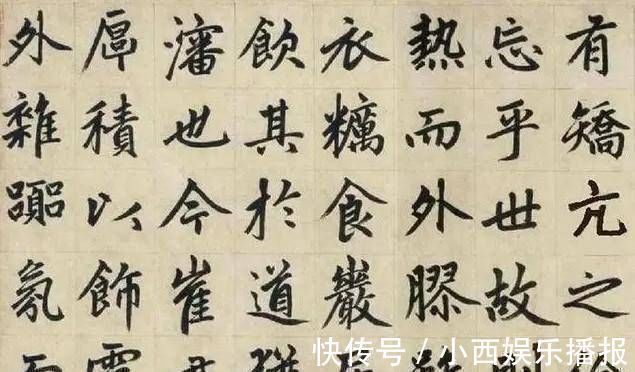 有矯亢之
忘乎世故
熱而外膠
衣糲食巖
飲其於道
瀋也今崔
厚積以飾
外雜囂氛
快传号/小西娱乐播报